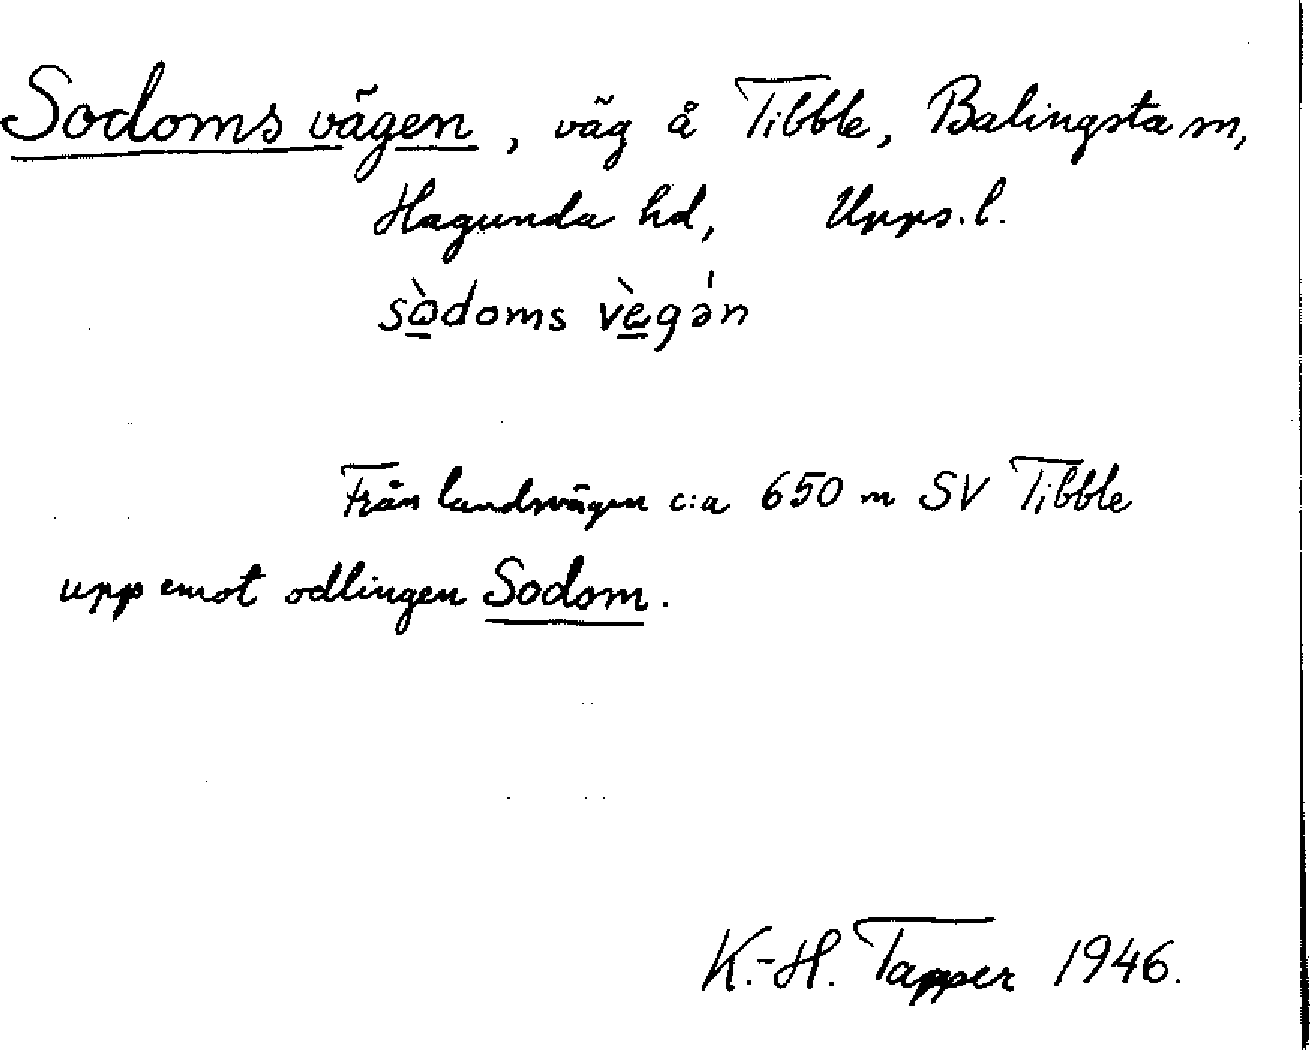 Sodoms vägen, väg å Tibble, Balingsta sn,
Hagunda hd, Upps. l.
sòdoms vègə́n
Från landsvägen c:a 650 m SV Tibble
upp emot odlingen Sodom.
K.-H. Tapper 1946.